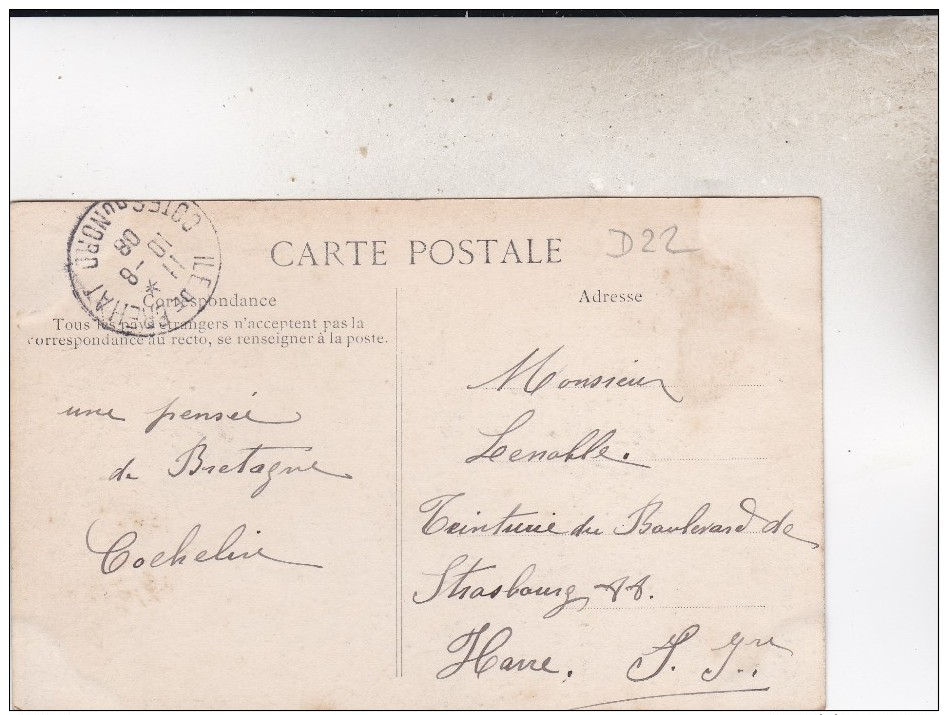 COTES DU NORD
ILE DE BREHAT
11 - 10
8 - 08
CARTE POSTALE
D22
Correspondance
Tous les pays étrangers n'acceptent pas la
correspondance au recto, se renseigner à la poste.
une pensée
de Bretagne
Cochelin
Adresse
Monsieur
Lenoble.
Teinturerie du Boulevard de
Strasbourg
Havre. S. Jre